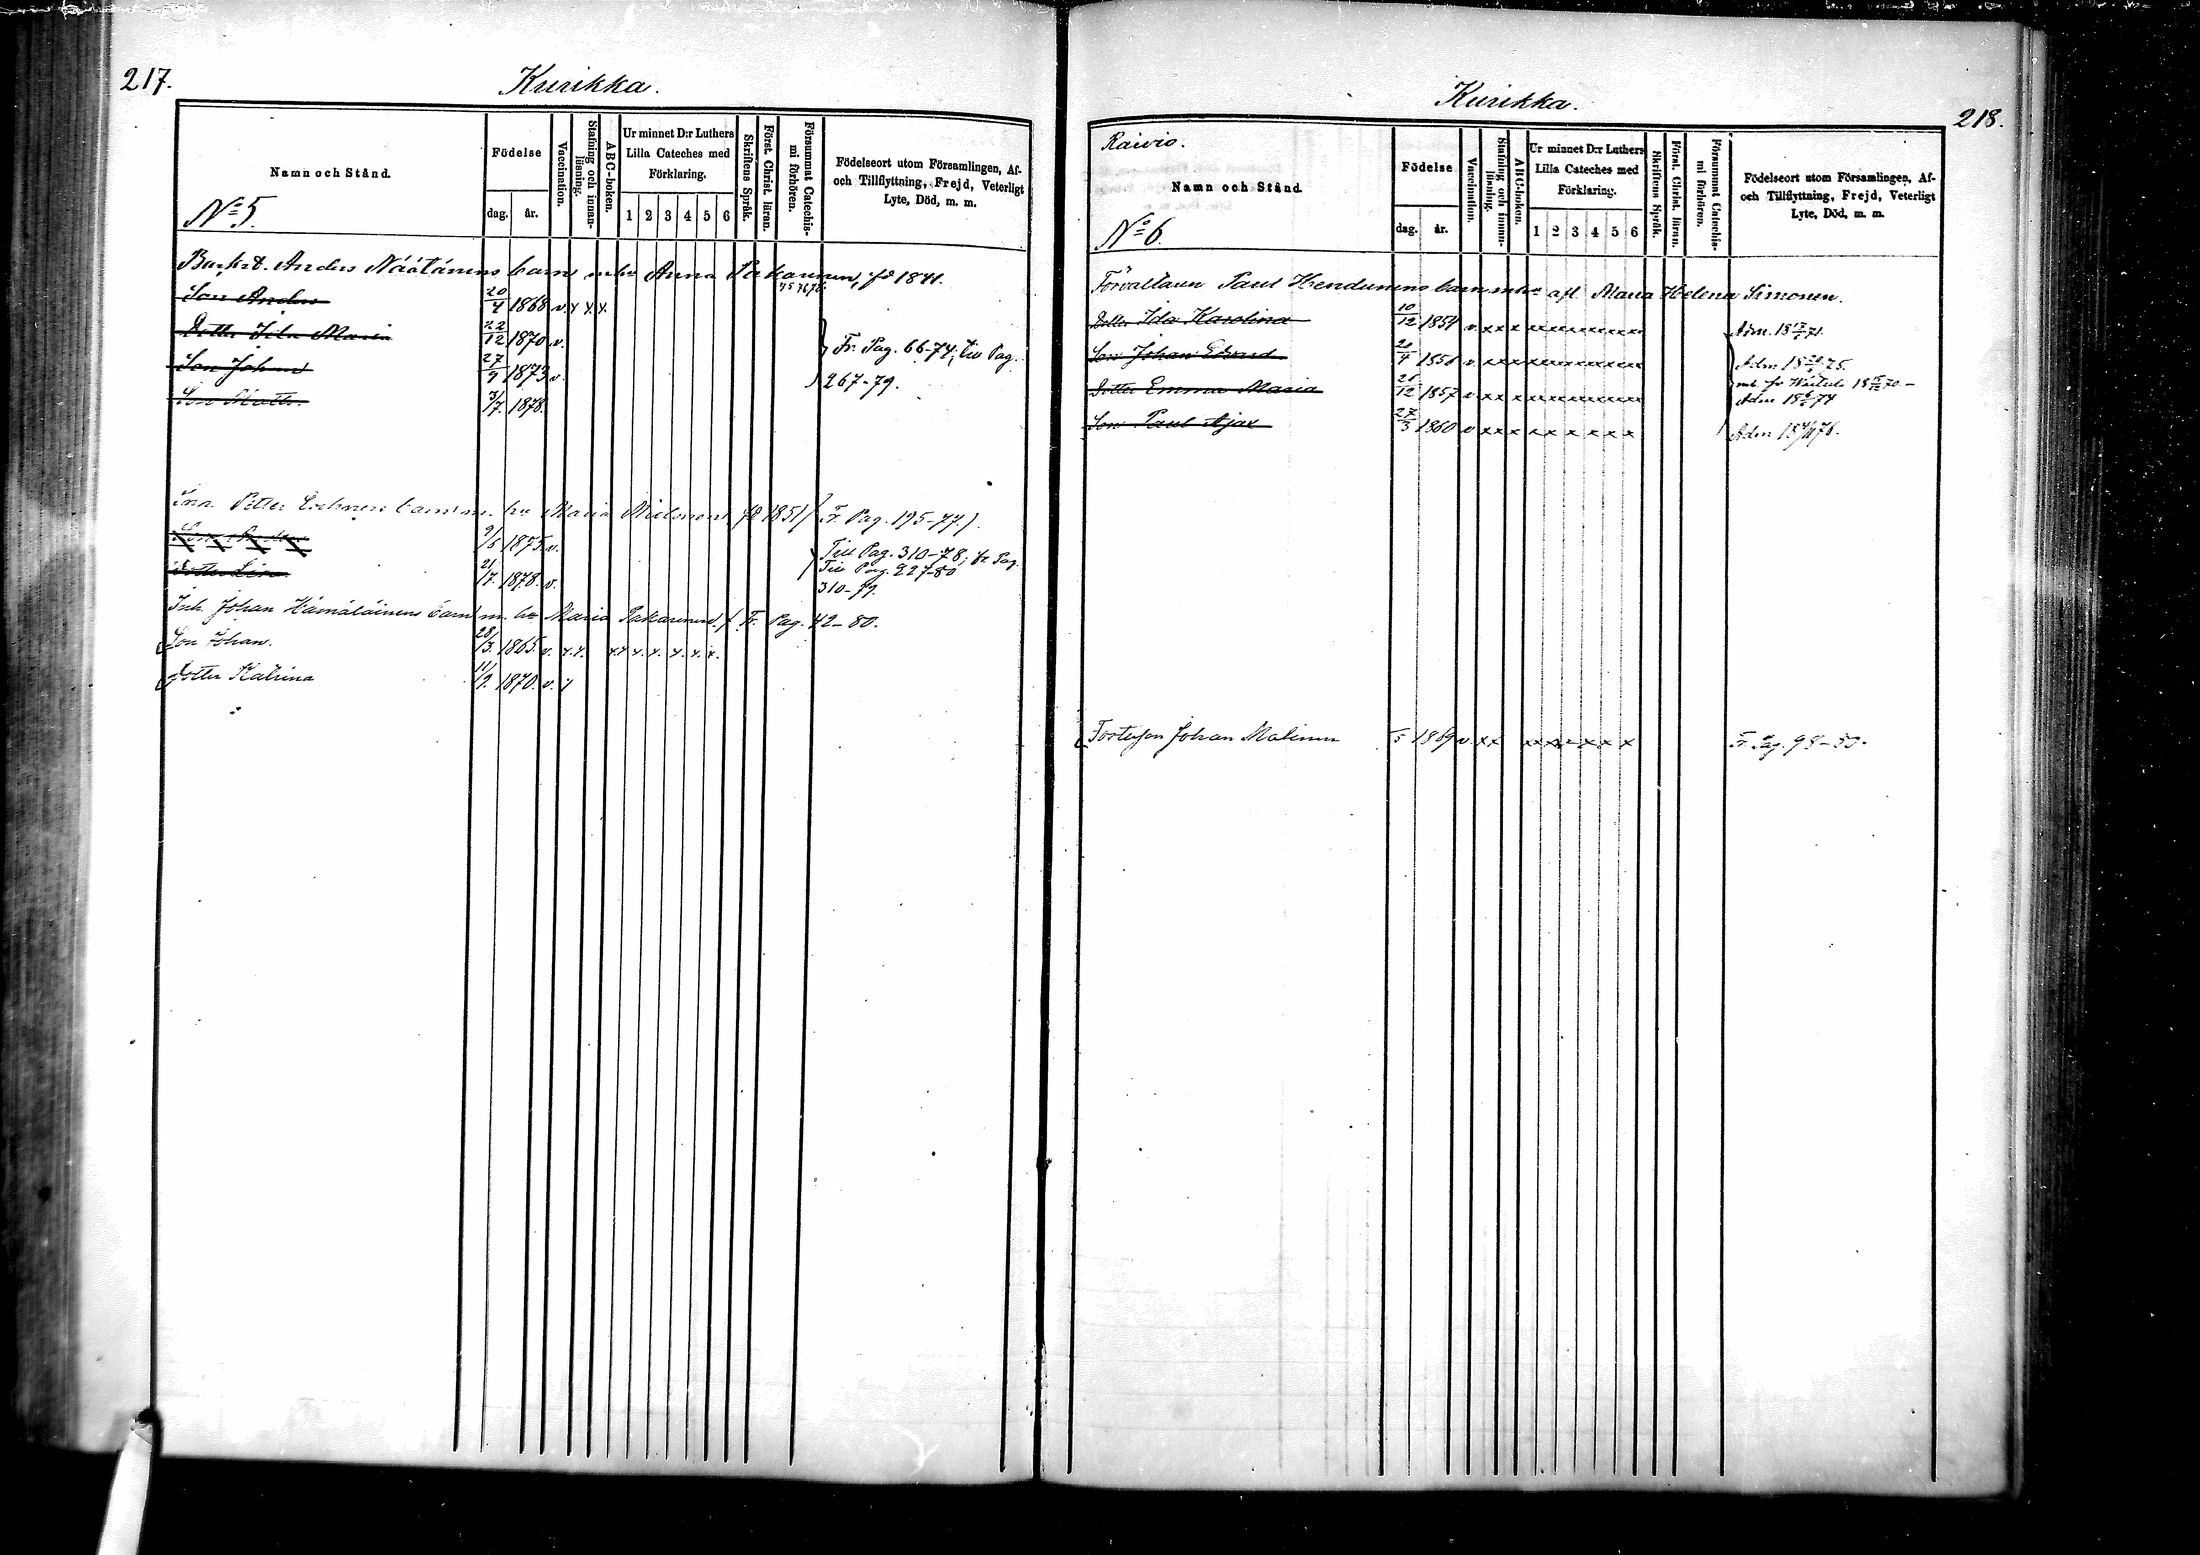 217.
Kurikka.
Namn och Stånd.
Födelse
dag.
år.
Vaccination.
Stafning och innan-
läsning.
ABC-boken.
Ur minnet D:r Luthers
Lilla Cateches med
Förklaring.
1 2 3 4 5 6
Skriftens Språk.
Först. Christ. läran.
Försummat Catechis-
mi förhören.
Födelseort utom Församlingen, Af-
och Tillflyttning, Frejd, Veterligt
Lyte, Död, m. m.
No 5.
Anders Näätänens barn Anna Pakarinen, fd 1841.
Son Anders 20/4 1868 v. x x x.
Dotter Maria 22/12 1870 v.
Son Johan 27/9 1873 v.
Fr. Pag. 66-74; till Pag.
267-79.
Son Matts. 3/7. 1878.
Petter barn m. hu Maria fd 1851 (Fr. Pag. 195-77.)
9/6 1875 v.
Till Pag. 310-78; fr Pag.
Dotter Lisa 21/7. 1878. v.
Till Pag. 227-80
310-79.
Inh. Johan Hämäläinens barn m. hu Maria Pakarinen. (Fr. Pag. 42-80.
Son Johan. 28/3. 1865. v. x. x. x x x. x. x. x. x.
Dotter Katrina 11/2. 1870. v. x
218.
Kurikka.
Raivio.
Namn och Stånd.
Födelse
dag.
år.
Vaccination.
Stafning och innan-
läsning.
ABC-boken.
Ur minnet D:r Luthers
Lilla Cateches med
Förklaring.
1 2 3 4 5 6
Skriftens Språk.
Först. Christ. läran.
Försummat Catechis-
mi förhören.
Födelseort utom Församlingen, Af-
och Tillflyttning, Frejd, Veterligt
Lyte, Död, m. m.
No 6.
Förvaltaren Paul Hendunens barn afl. Maria Helena Simonen.
Dotter Ida Karolina 10/12 1854 v x x x
Adm. 71.
Son Johan Edvard 20/4 1856 v x x x
Adm 75.
Dotter Emma Maria 21/12 1857 v x x x
Adm 74
Son Paul Ajax 27/3 1860 v x x x x x x x x x
Adm 76.
Fosterson Johan Malinen 1869 v. x x x x x x x x
Fr. Pag. 98-80.